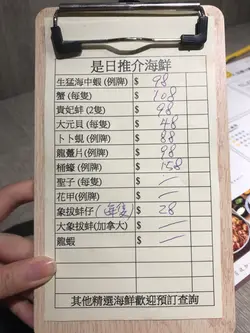 是日推介海鮮
生猛海中蝦 (例牌) $ 98
蟹 (每隻) $ 108
貴妃蚌 (2隻) $ 98
大元貝 (每隻) $ 48
卜卜蜆 (例牌) $ 88
龍躉片(例牌) $ 98
桶蠔 (例牌) $ 158
聖子 (每隻) $ —
花甲(例牌) $ —
象拔蚌仔 (每隻) $ 28
大象拔蚌(加拿大) $ —
龍蝦 $ —
其他精選海鮮歡迎預訂查詢